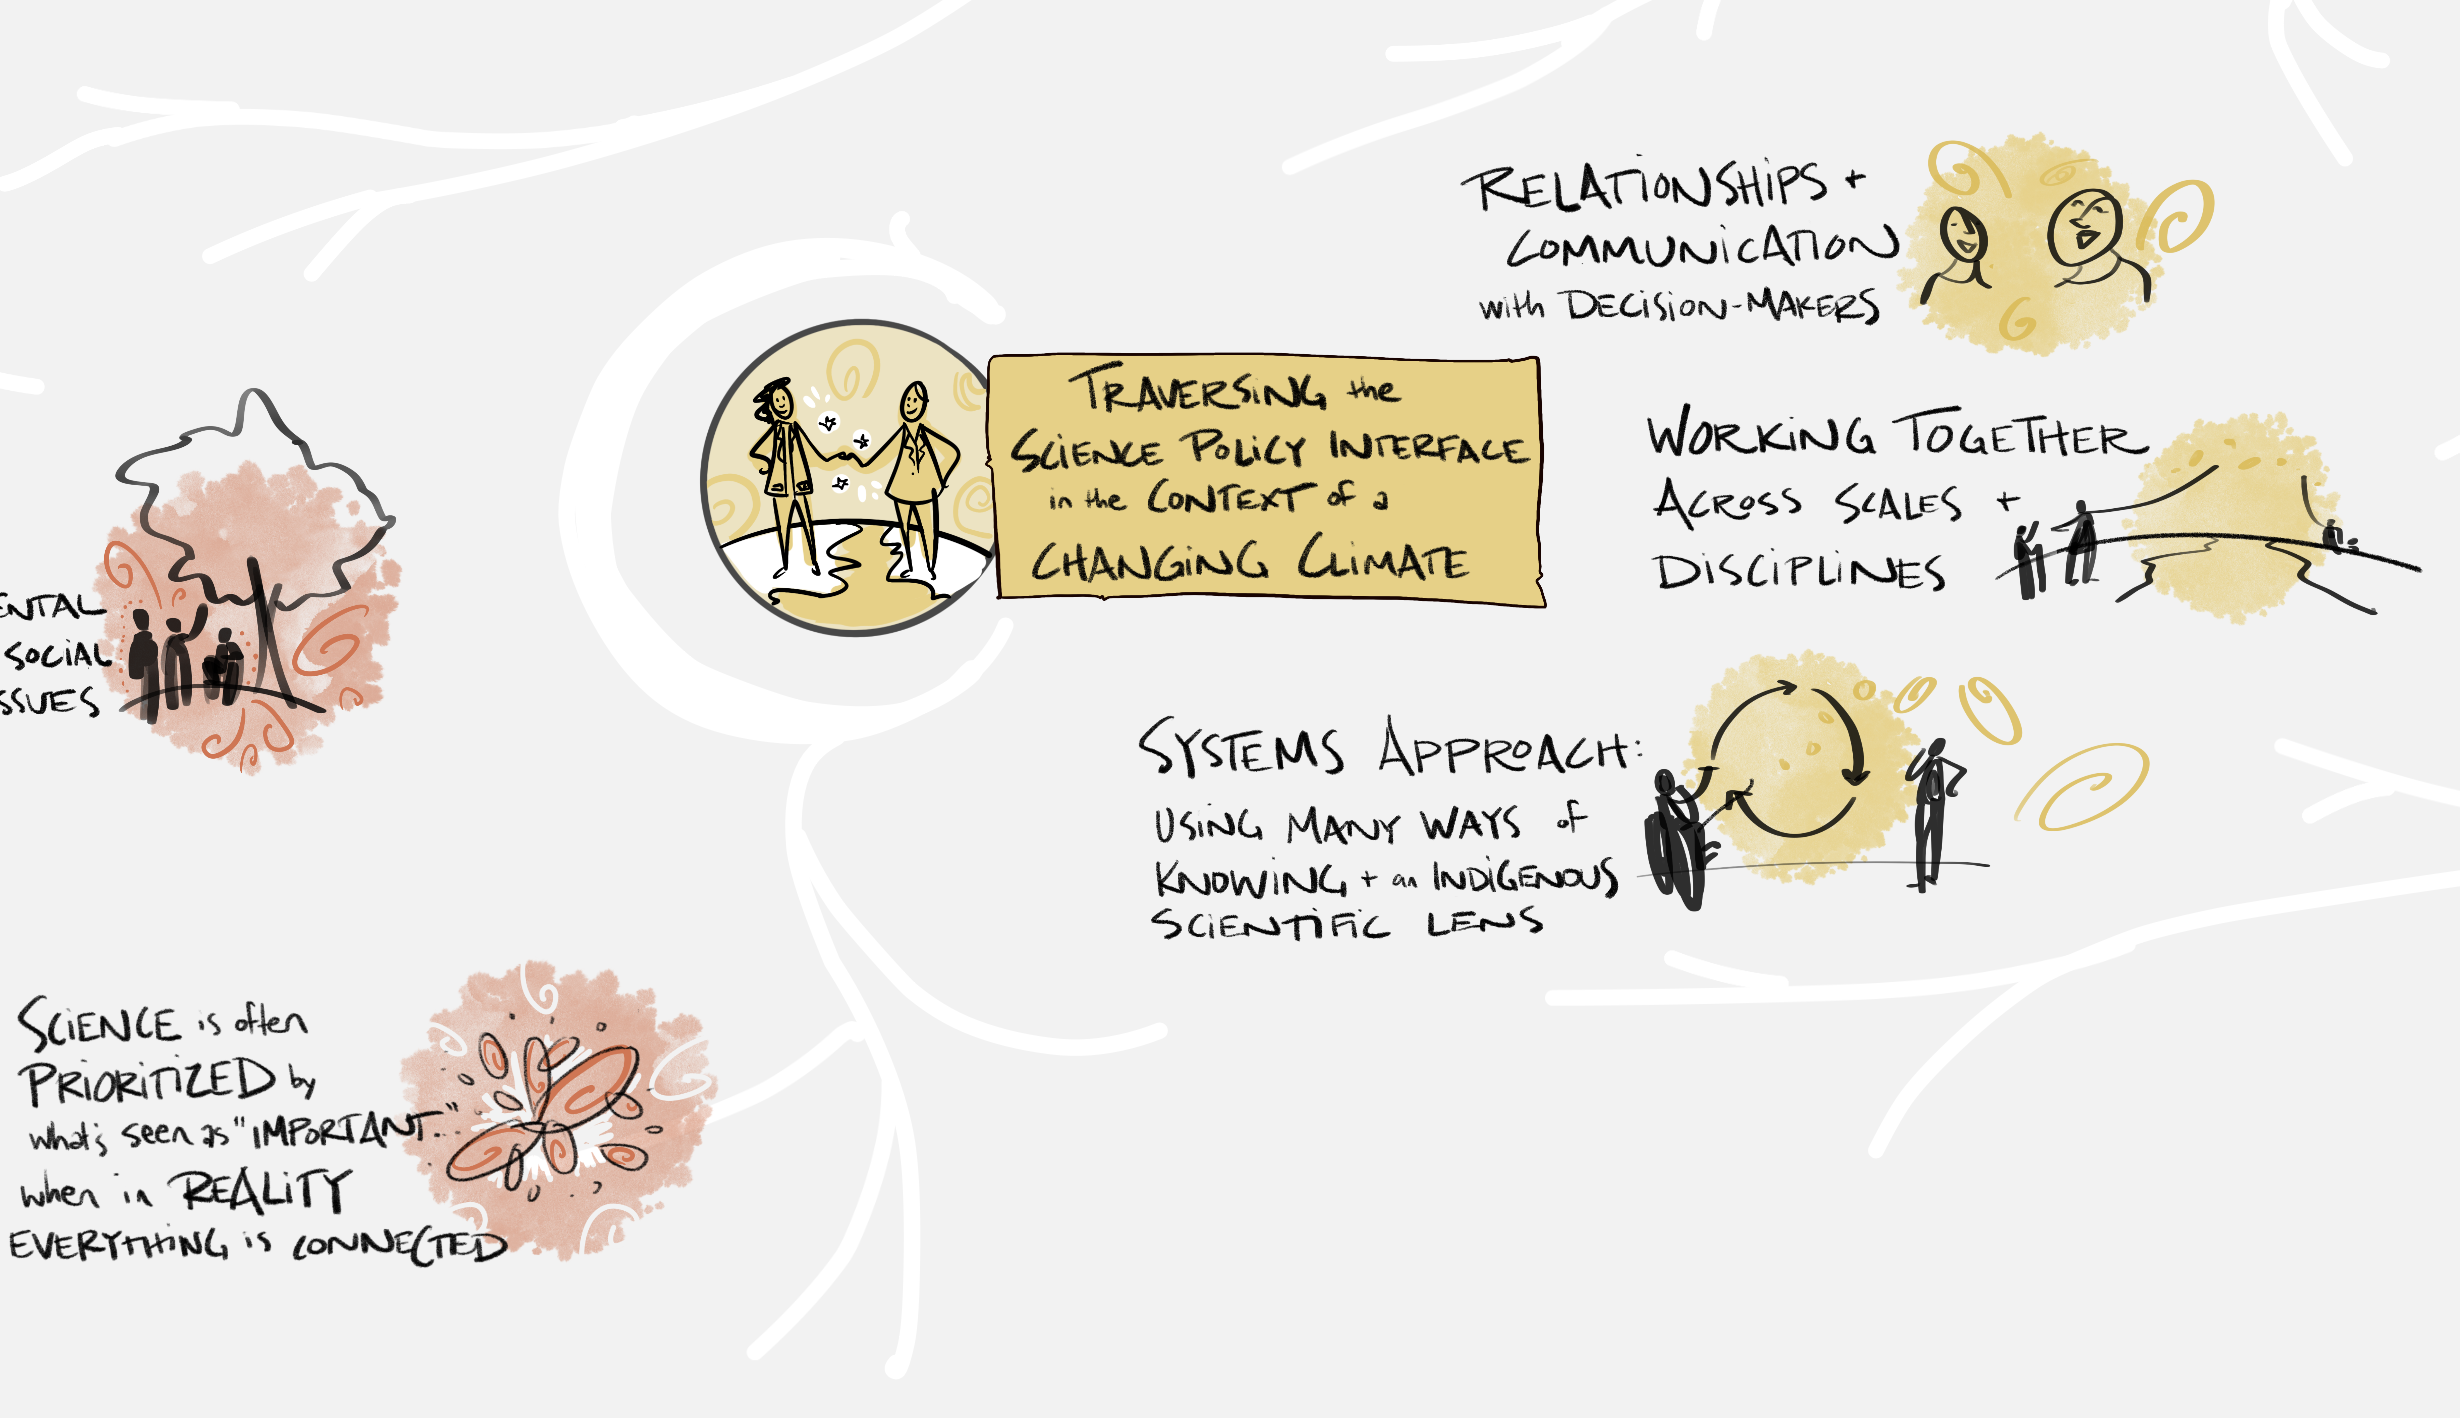 RELATIONSHIPS +
COMMUNICATION
with DECISION-MAKERS
TRAVERSING the
SCIENCE POLICY INTERFACE
in the CONTEXT of a
CHANGING CLIMATE
WORKING TOGETHER
ACROSS SCALES +
DISCIPLINES
SYSTEMS APPROACH:
USING MANY WAYS of
KNOWING + an INDIGENOUS
SCIENTIFIC LENS
ENTAL
SOCIAL
SSUES
SCIENCE is often
PRIORITIZED by
what's seen as "IMPORTANT..."
when in REALITY
EVERYTHING is CONNECTED